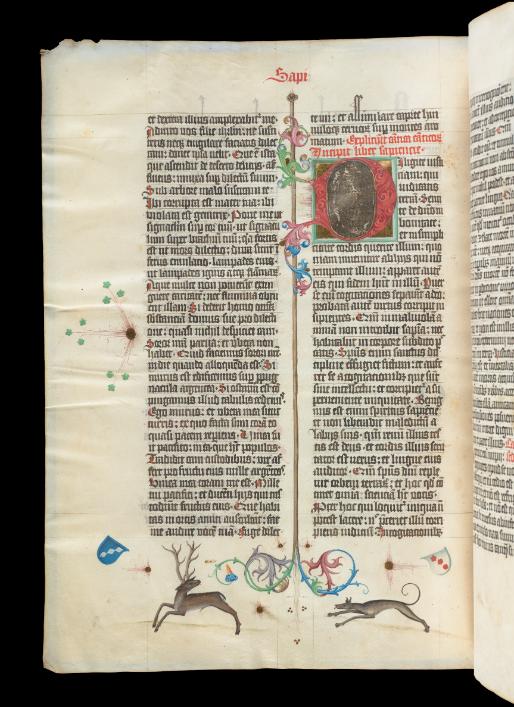 Sapi
et dextera illius amplexabit᷑ me.
Adiuro vos filie ihrlm: ne susci
tetis neqʒ euigilare faciatis dilec
tam: donec ipsa velit. Que est ista
que ascendit de deserto delicijs af
fluens: innixa sup dilectū suū.
Sub arbore malo suscitaui te
Ibi corrupta est mater tua: ibi
violata est genetrix. Pone me ut
signaculū sup cor tuū: ut signacu
lum super brachiū tuū: qa fortis
est ut mors dilectio: dura sicut ī
fernus emulatio. lampades eius:
ut lampades ignis atqʒ flāmarū.
Aque multe non potuerūt extin
guere caritatē: nec flumina obru
ent illam. Si dederit homo omnē
substantiā domus sue pro dilecti
one: quasi nichil despiciet eam.
Soror nrā parua: et vbera non
habet. Quid faciemus sorori nrē
in die quando alloquenda est? Si
murus est edificemus sup ppug
nacula argentea. Si ostium est cō
pingamus illud tabulis cedrinis
Ego murus: et vbera mea sicut
turris: ex quo facta sum corā eo
quasi pacem repiens. Vinea fu
it pacifico: in ea que hʒ populos.
Tradidit eam custodibus: vir af
fert pro fructu eius mille argēteos
Vinea mea coram me est. Mille
tui pacifici: et ducēti hijs qui cus
todiunt fructus eius. Que habi
tas in ortis amici auscultāt: fac
me audire vocē tuā. Fuge dilec
te mi: et assimilare capree hin
nuloqʒ ceruorū sup montes aro
matum. Explicit cantica cāticorū
Incipit liber sapientie.
Diligite iusti
ciam: qui
iudicatis
terrā. Senti
te de dn̄o in
bonitate:
et in simpli
citate cordis querite illum: qm̄
inuenitur ab his qui non
temptant illum: apparet autē
eis qui fidem hn̄t in illū. Puer
se eni cogitationes sepant a deo:
probata autē virtus corripit in
sipientes. Qm̄ in maliuolā a
nimā non introibit sapīa: nec
habitabit in corpore subdito p
catis. Spūs enim sanctus di
scipline effugiet fictum: et aufe
ret se a cogitationibus que sūt
sine intellectu: et corripiet᷑ a su
perueniente iniquitate. Benig
nus est enim spiritus sapiētie
et non liberabit maledicū a
labijs suis. qm̄ renū illius tes
tis est deus: et cordis illius scru
tator est verus: et lingue eius
auditor. Qm̄ spūs dn̄i reple
uit orbem terrarū: et hoc qd cō
tinet omia: scientiā hʒ vocis.
Pter hoc qui loquit᷑ iniqua nō
potest latere: nec pteriet illū corri
piens iudiciū. Interogationibꝫ